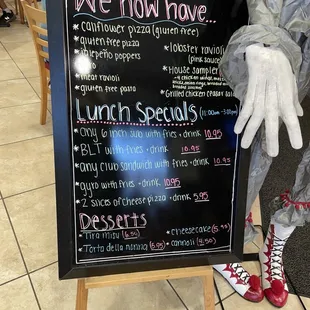 We now have...
*callflower pizza (gluten free)
*gluten free pizza
*jalapeño poppers
*meat ravioli
*gluten free pasta
*lobster ravioli
(pink sauce)
*House sampler
*Grilled chicken caesar salad
Lunch Specials (11:00am-3:00pm)
*any 6 inch sub with fries + drink 10.95
*BLT with fries + drink 10.95
*any club sandwich with fries + drink 10.95
*gyro with fries + drink 10.95
*2 slices of cheese pizza + drink 5.95
Desserts
*Tira misu (6.50) *cheesecake (5.99)
*Torta della nonna (6.95) *cannoli (4.50)